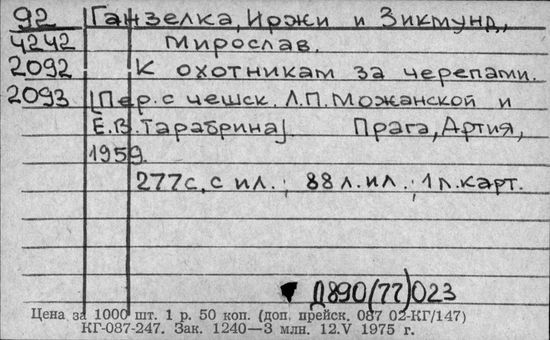 92 Ганзелка, Иржи и Зикмунд,
4242 Мирослав.
2092 К охотникам за черепами.
2093 [Пер. с чешск. Л.П. Можанской и
Е.В. Тарабрина]. Прага, Артия,
1959.
277с. с ил.; 88 л. ил.; 1 л. карт.
Д890(77)023
Цена за 1000 шт. 1 р. 50 коп. (доп. прейск. 087 02-КГ/147)
КГ-087-247. Зак. 1240—3 млн. 12.V 1975 г.